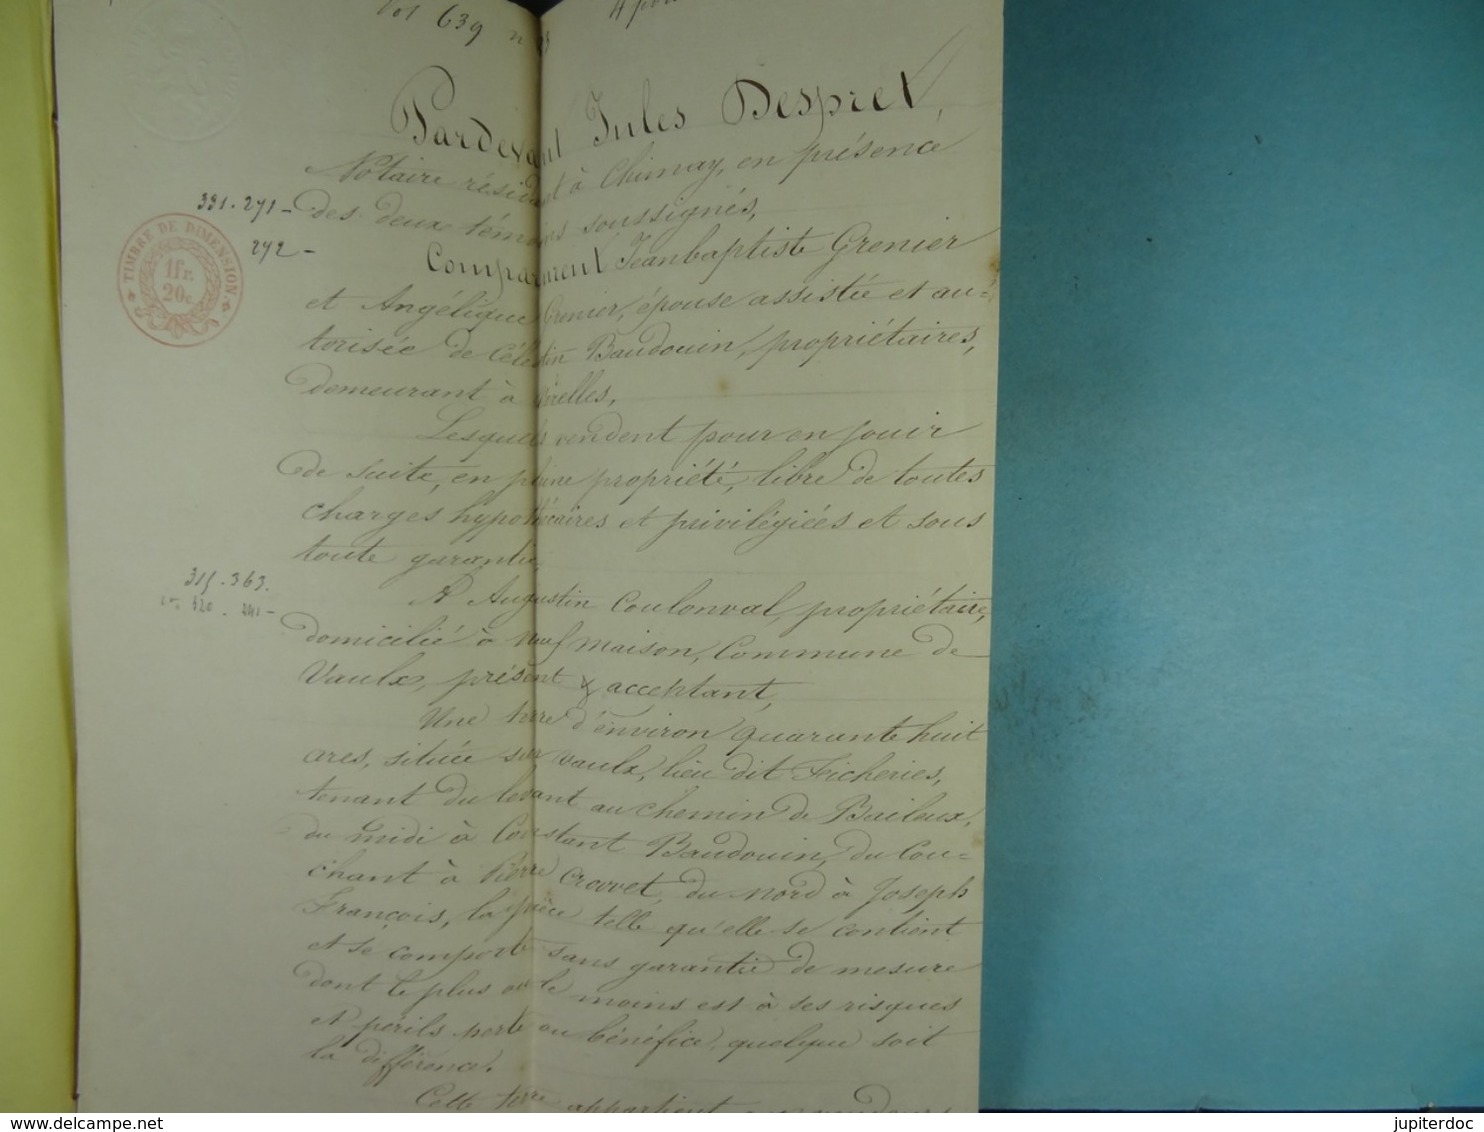 Vol 639 n
Pardevant Jules Despret,
Notaire résidant à Chimay, en présence
331.271 - des deux témoins soussignés,
272 -
TIMBRE DE DIMENSION
1 fr.
20 c.
Comparurent Jeanbaptiste Grenier
et Angélique Grenier, épouse assistée et au-
torisée de Célestin Baudouin, propriétaires,
demeurant à Virelles,
Lesquels vendent pour en jouir
de suite, en pleine propriété, libre de toutes
charges hypothécaires et privilégiées et sous
toute garantie,
315.363.
A Augustin Coulonval, propriétaire,
domicilié à Neuf Maison, Commune de
Vaulx, présent & acceptant,
Une terre d'environ quarante huit
ares, située sur Vaulx, lieu dit Ficheries,
tenant du levant au chemin de Baileux,
du midi à Constant Baudouin, du Cou=
chant à Pierre Cravet, du nord à Joseph
François, la pièce telle qu'elle se contient
et se comporte sans garantie de mesure
dont le plus ou le moins est à ses risques
et périls perte ou bénéfice, quelque soit
la différence.
Cette terre appartient
jupiterdoc
www.delcampe.net